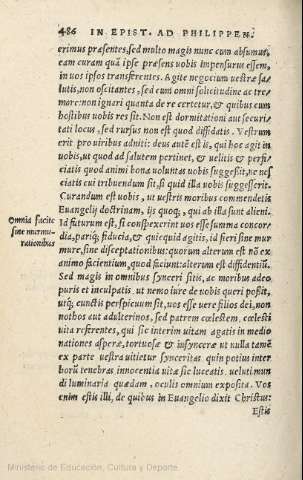 486 IN EPIST. AD PHILIPPEN.
erimus præsentes, sed multo magis nunc cum absumus,
eam curam quã ipse præsens uobis impensurus essem,
in uos ipsos transferentes. Agite negocium uestræ sa-
lutis, non oscitantes, sed cum omni solicitudine ac tre-
more: non ignari quanta de re certetur, & quibus cum
hostibus uobis res sit. Non est dormitationi aut securi-
tati locus, sed rursus non est quod diffidatis. Vestrum
erit pro uiribus adniti: deus autẽ est is, qui hoc agit in
uobis, ut quod ad salutem pertinet, & uelitis & perfi-
ciatis quod animi bona uoluntas uobis suggessit, ne nes
ciatis cui tribuendum sit, si quid illa uobis suggesserit.
Curandum est uobis, ut uestris moribus commendetis
Euangelij doctrinam, ijs quoq;, qui ab illa sunt alieni.
Omnia facite
sine murmu-
rationibus
Id futurum est, si conspexerint uos esse summa concor-
dia, pariq; fiducia, & quicquid agitis, id fieri sine mur
mure, sine disceptationibus: quorum alterum est nõ ex
animo facientium, quod faciunt: alterum est diffidentiũ.
Sed magis in omnibus synceri sitis, ac moribus adeo
puris et inculpatis. ut nemo iure de uobis queri possit,
utq; cunctis perspicuum sit, uos esse uere filios dei, non
nothos aut adulterinos, sed patrem cœlestem, cœlesti
uita referentes, qui sic interim uitam agatis in medio
nationes asperæ, tortuosæ & insynceræ ut nulla tamẽ
ex parte uestra uitietur synceritas. quin potius inter
horũ tenebras innocentia uitæ sic luceatis. ueluti mun
di luminaria quædam, oculis omnium exposita. Vos
enim estis illi, de quibus in Euangelio dixit Christus:
Estis
Ministerio de Educación, Cultura y Deporte